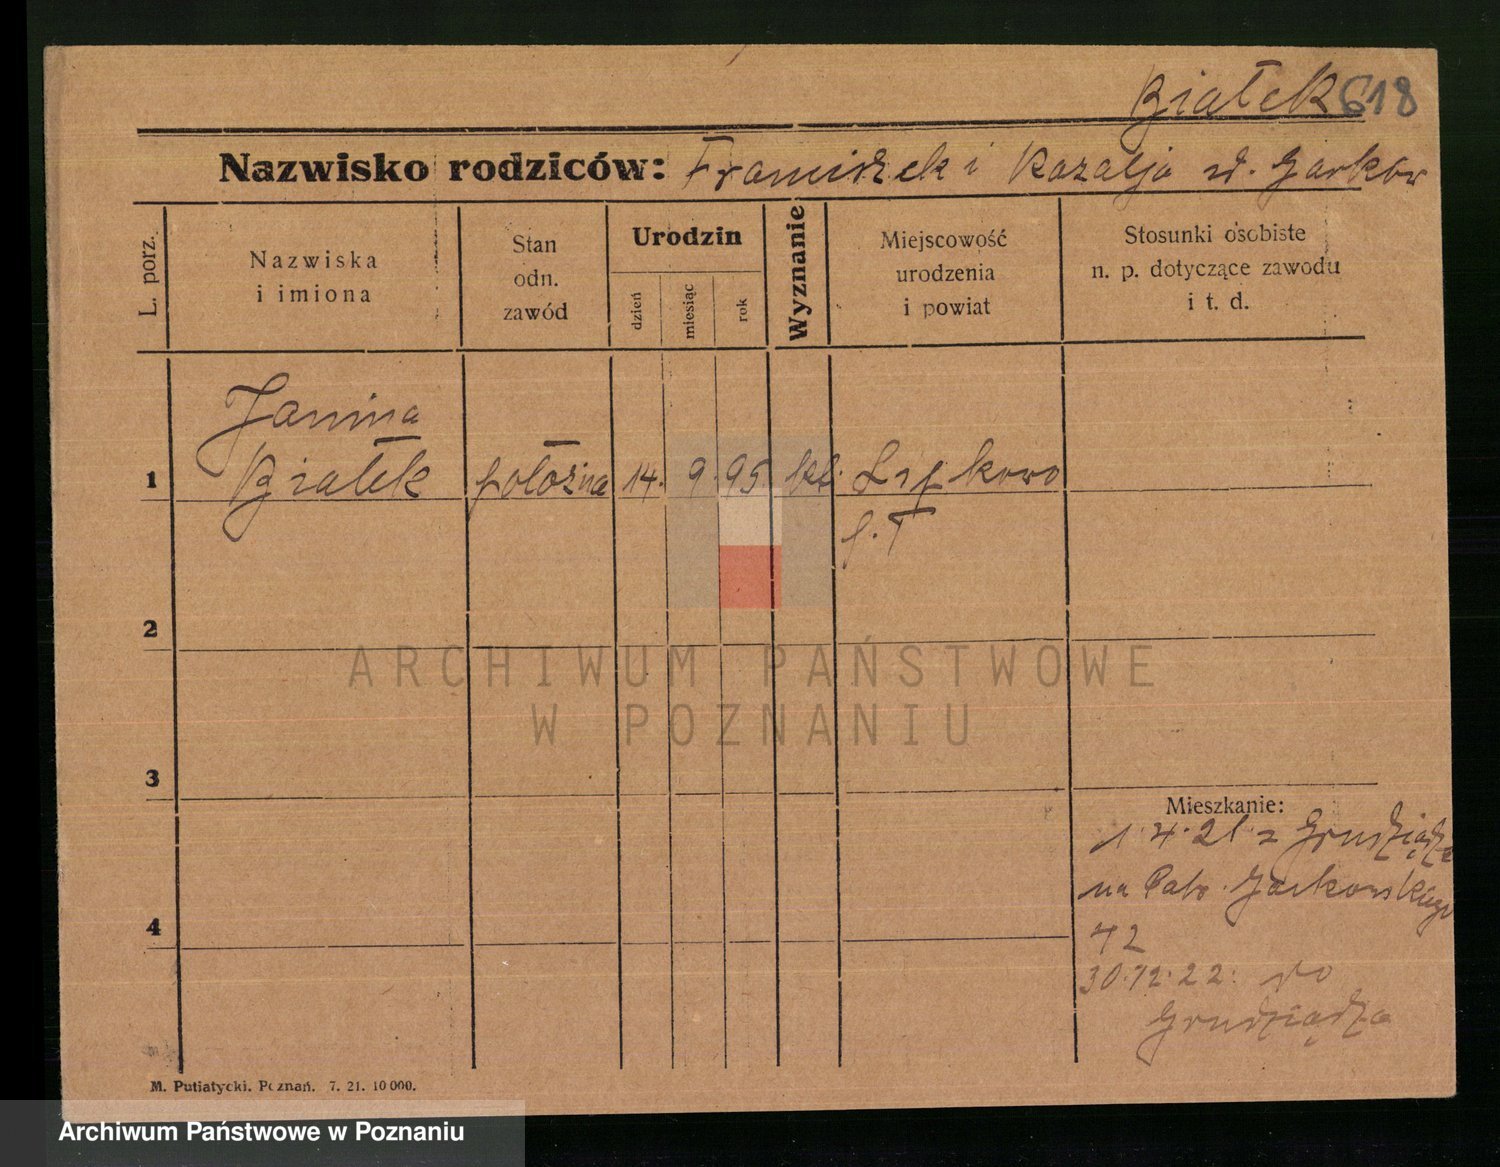 Białek 618
Nazwisko rodziców: Franciszek i Rozalja
L. porz.
Nazwiska
i imiona
Stan
odn.
zawód
Urodzin
dzień
miesiąc
rok
Wyznanie
Miejscowość
urodzenia
i powiat
Stosunki osobiste
n. p. dotyczące zawodu
i t. d.
Janina
1 Białek położna 14. 9. 95. kt. Lipkowo
2
3
Mieszkanie:
1.4.21. z Grudziądza
na Patr. Jackowskiego
4
42
30.12.22. do
Grudziądza
M. Putiatycki. Poznań. 7. 21. 10 000.
ARCHIWUM PAŃSTWOWE
W POZNANIU
Archiwum Państwowe w Poznaniu